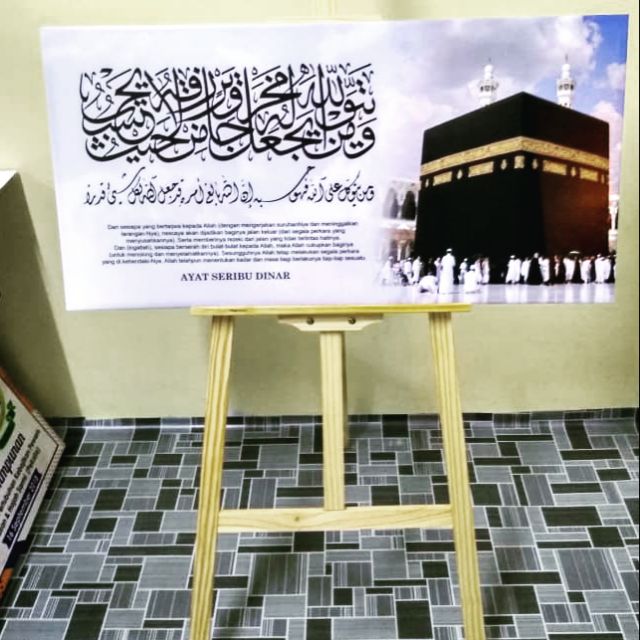 ومن يتق الله يجعل له مخرجا ويرزقه من حيث لا يحتسب
ومن يتوكل على الله فهو حسبه إن الله بالغ أمره قد جعل الله لكل شيء قدرا
Dan sesiapa yang bertaqwa kepada Allah (dengan mengerjakan suruhanNya dan meninggalkan
larangan-Nya), nescaya akan dijadikan baginya jalan keluar (dari segala perkara yang
menyusahkannya). Serta memberinya rezeki dari jalan yang tidak terlintas hatinya.
Dan (Ingatlah), sesiapa berserah diri bulat-bulat kepada Allah, maka Allah cukupkan baginya
(untuk menolong dan menyelamatkannya). Sesungguhnya Allah tetap melakukan segala perkara
yang dikehendaki-Nya. Allah telahpun menentukan kadar dan masa bagi berlakunya tiap-tiap sesuatu
AYAT SERIBU DINAR